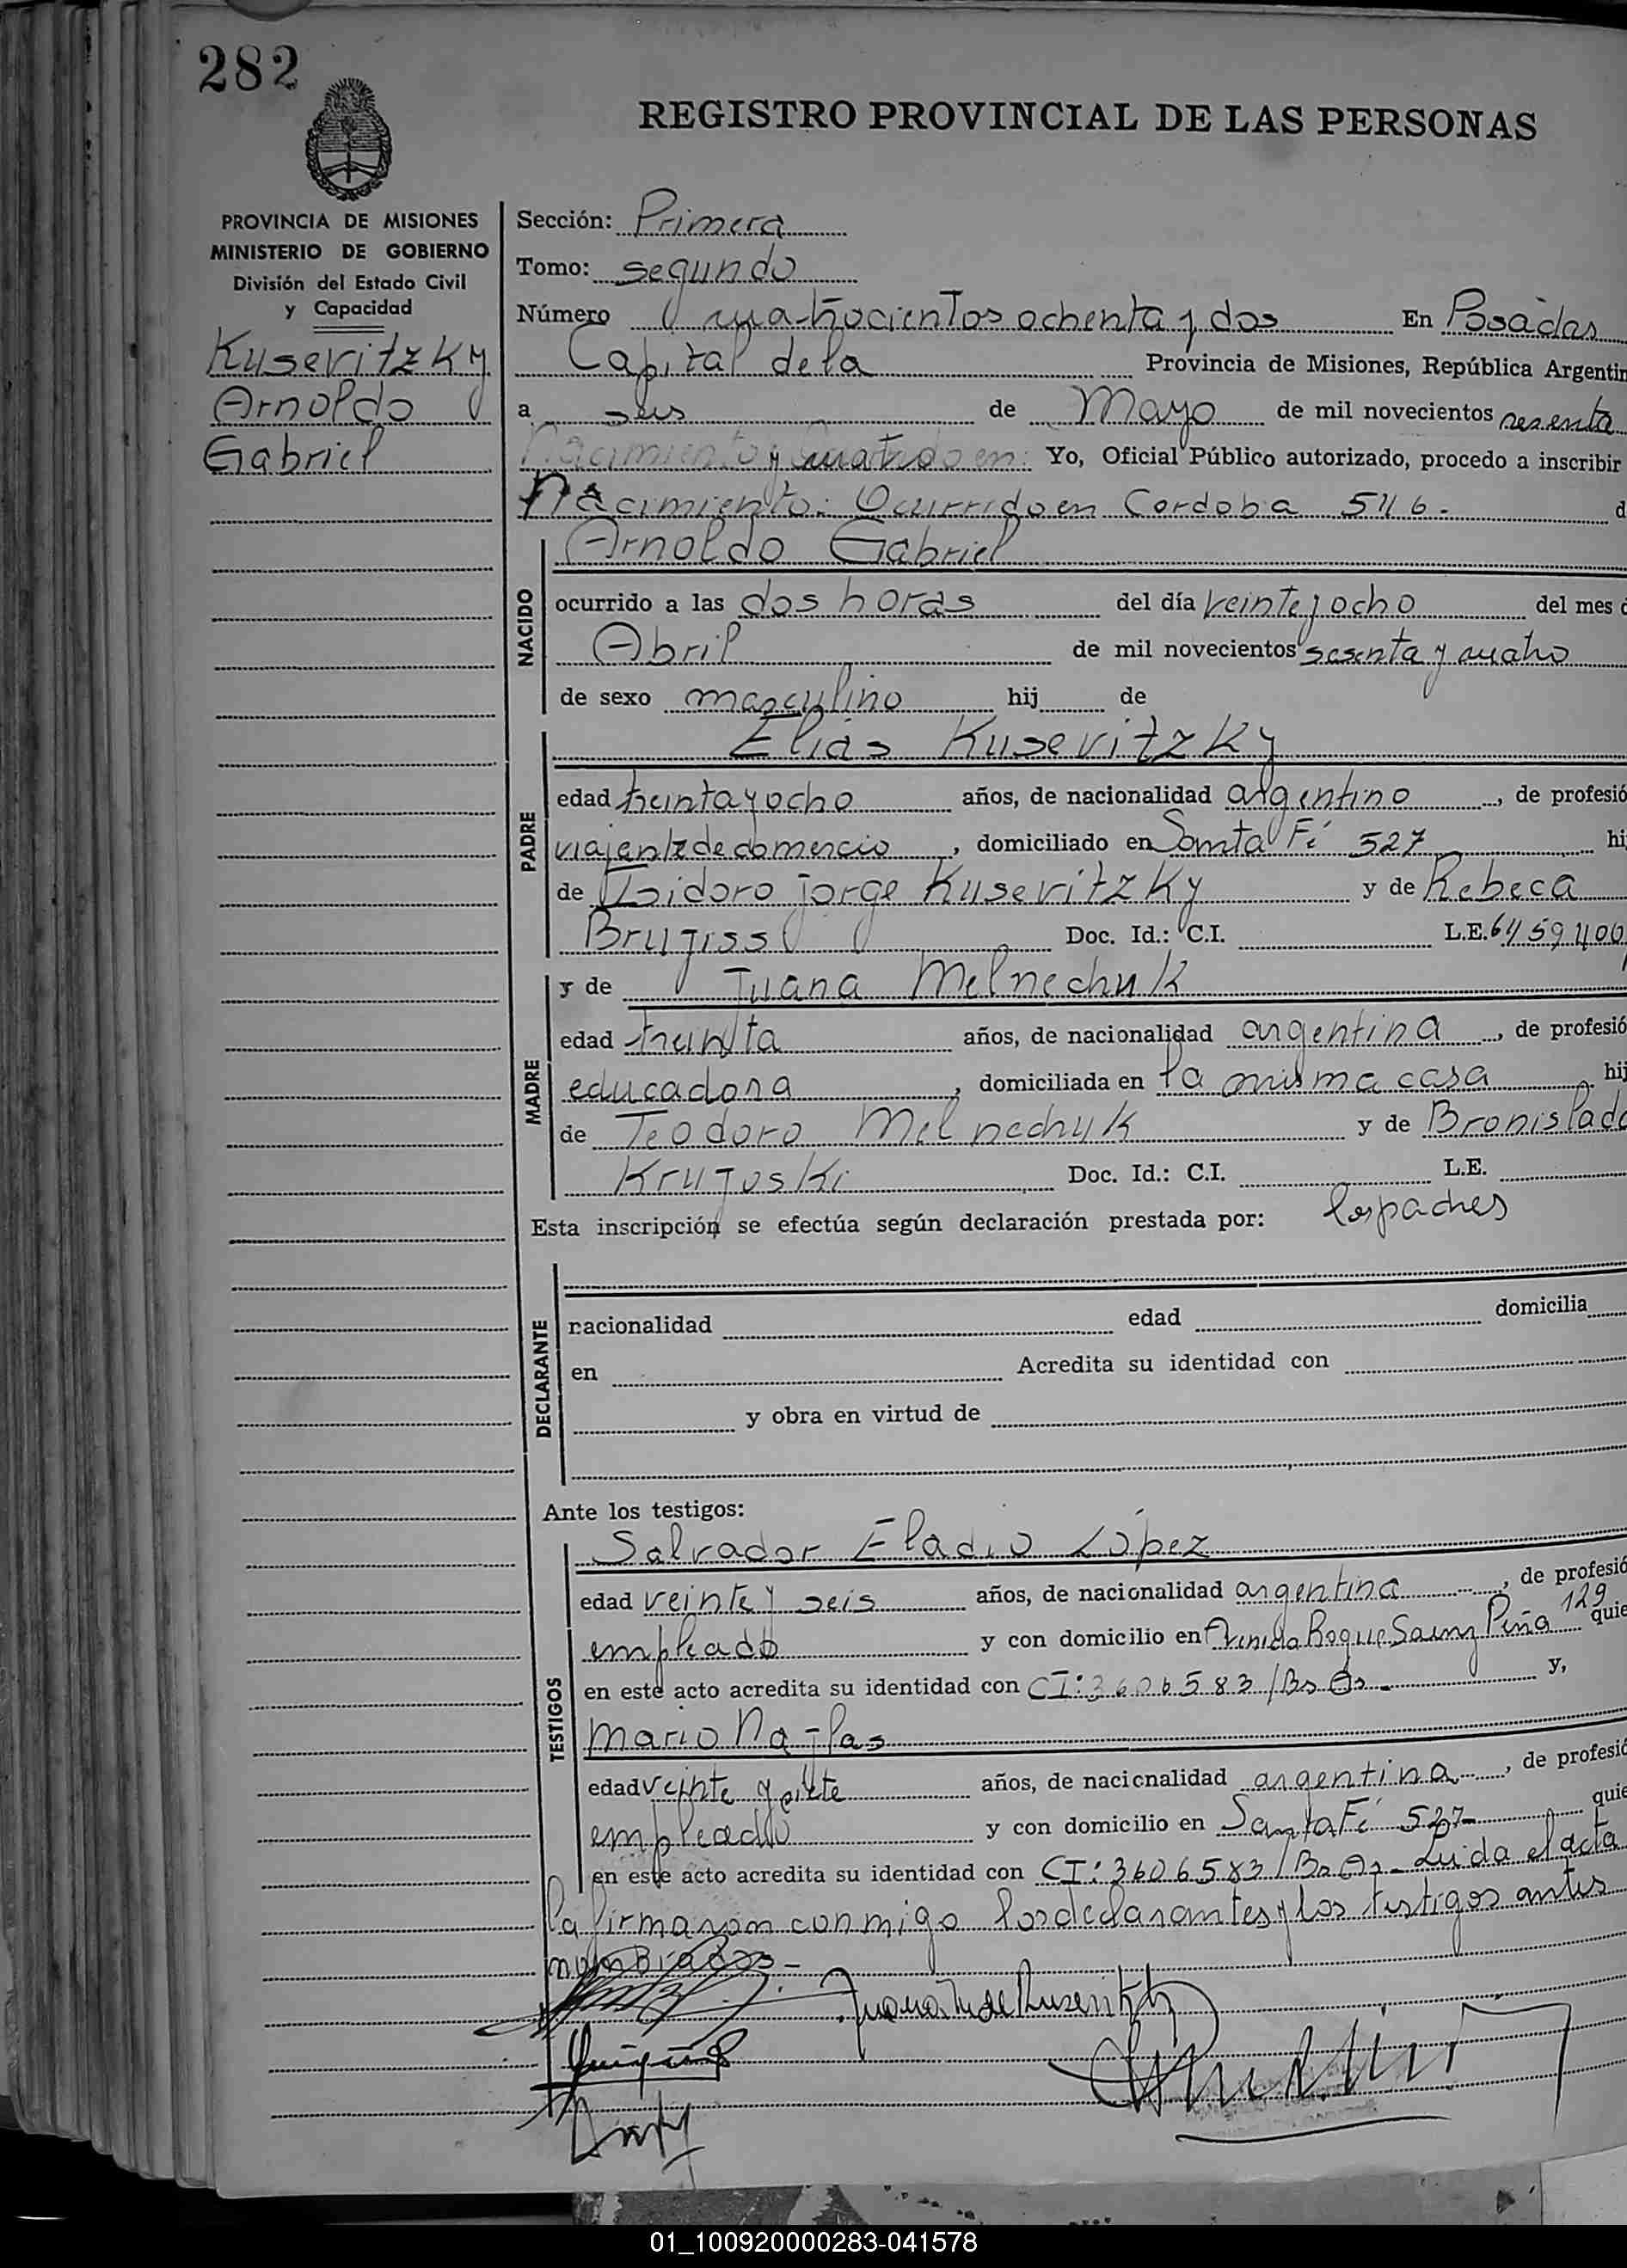 282
REGISTRO PROVINCIAL DE LAS PERSONAS
PROVINCIA DE MISIONES
MINISTERIO DE GOBIERNO
División del Estado Civil
y Capacidad
Kusevitzky
Arnoldo
Gabriel
Sección: Primera
Tomo: segundo
Número cuatrocientos ochenta y dos En Posadas
Capital de la Provincia de Misiones, República Argentin
a seis de Mayo de mil novecientos sesenta
y cuatro Yo, Oficial Público autorizado, procedo a inscribir
Nacimiento: Ocurrido en Cordoba 546.- d
NACIDO
Arnoldo Gabriel
ocurrido a las dos horas del día veinte y ocho del mes d
Abril de mil novecientos sesenta y cuatro
de sexo masculino hij de
PADRE
Elias Kusevitzky
edad treinta y ocho años, de nacionalidad argentino, de profesió
viajante de comercio, domiciliado en Santa Fé 527 hi
de Isidoro jorge Kusevitzky y de Rebeca
Doc. Id.: C.I. L.E. 6459400
MADRE
y de Juana Melnechuk
edad treinta años, de nacionalidad argentina, de profesió
educadora, domiciliada en la misma casa hij
de Teodoro Melnechuk y de
Krujoski Doc. Id.: C.I. L.E.
Esta inscripción se efectúa según declaración prestada por: los padres
DECLARANTE
nacionalidad edad domicilia
en Acredita su identidad con
y obra en virtud de
Ante los testigos:
TESTIGOS
Salvador Eladio López
edad veinte y seis años, de nacionalidad argentina, de profesió
empleado y con domicilio en Avenida Roque Saenz Peña 129 quie
en este acto acredita su identidad con CI: 3606583/Bs As.- y,
Mario
edad veinte y siete años, de nacionalidad argentina, de profesió
empleado y con domicilio en Santa Fé 527 quie
en este acto acredita su identidad con CI: 3606583/Bs As- Leida el acta
la firmaron conmigo los declarantes y los testigos antes
nombrados-
01_100920000283-041578